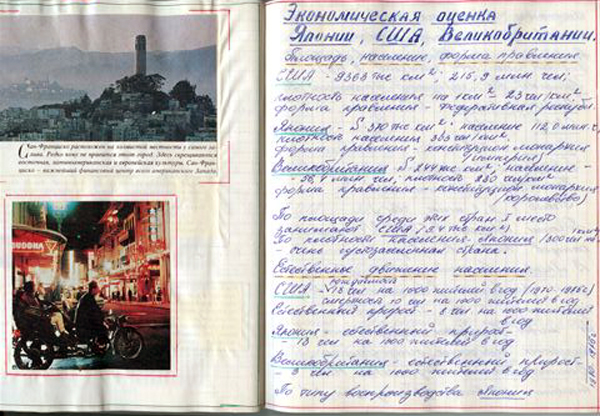 Сан-Франциско расположен на холмистой местности у самого за-
лива. Редко кому не нравится этот город. Здесь скрещиваются
восточная, латиноамериканская и европейская культуры. Сан-Фран-
циско – важнейший финансовый центр всего американского Запада.
BUDDHA
Экономическая оценка
Японии, США, Великобритании.
Площадь, население, форма правления
США - 9363 тыс км²; 215,9 млн чел;
плотность населения на 1 км² - 23 чел/км²
форма правления - Федеративная республ.
Япония S 370 тыс км²; население 112,0 млн.ч,
плотность населения
форма правления - конституцион монархия
(империя)
Великобритания S 244 тыс км²; население -
форма правления - конституцион монархия
(королевство)
По площади среди этих стран I место
занимают США
По плотности населения - Япония
густозаселенная страна.
Естественное движение населения.
США - на 1000 жителей в год
смертность 10 чел на 1000 жителей в год
Естественный прирост - 8 чел на 1000 жителей
в год
Япония - естественный прирост -
на 1000 жителей в год
Великобритания - естественный прирост -
чел на 1000 жителей в год
По типу воспроизводства Япония